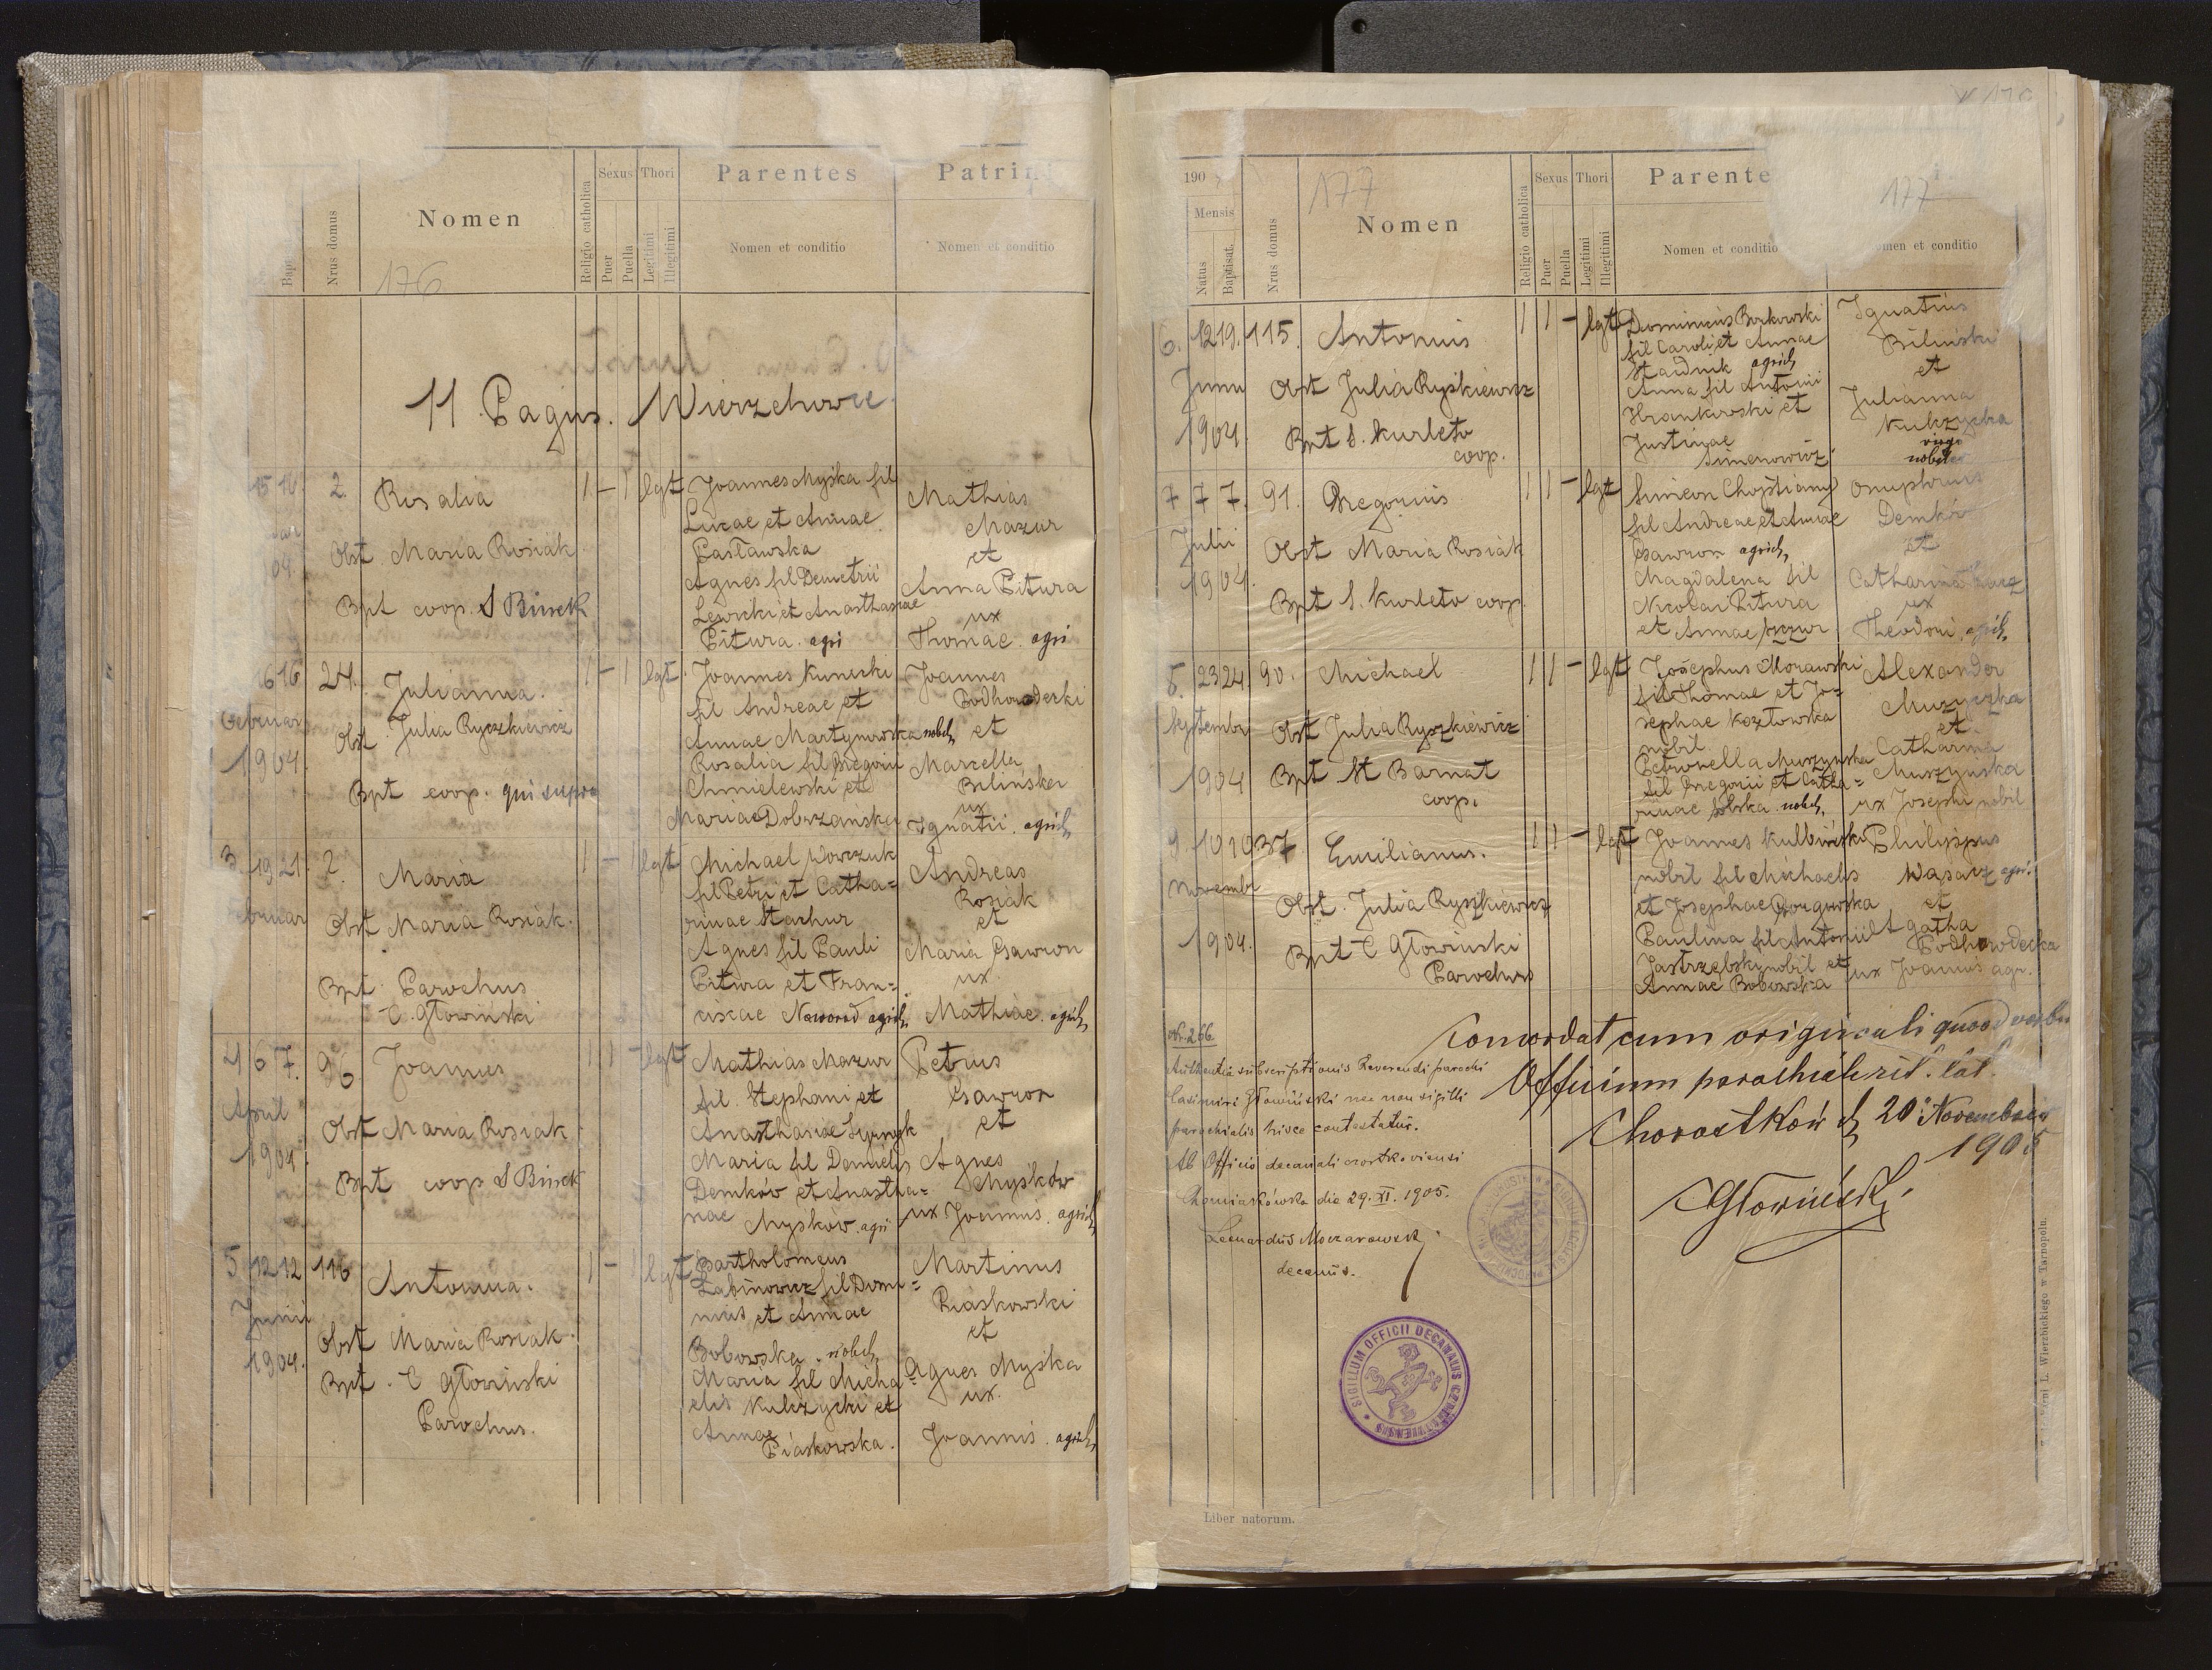 Bap
Nrus domus
Nomen
176
Religio catholica
Sexus
Puer
Puella
Thori
Legitimi
Illegitimi
Parentes
Nomen et conditio
Patrini
Nomen et conditio
11. Pagus. Wierzchowce.
15 16. 2. Rosalia 1 - 1 lgt
04
Obst Maria Rosiak
Bpt coop. S Binek
Joannes Myśka fil
Lucae et Annae
Pasławska
Agnes fil Demetrii
Lewicki et Anasthasiae
Pitura. agri
Mathias
Mazur
et
Anna Pitura
ux
Thomae. agri
16 16 24. Julianna. 1 - 1 lgt
Februar
1904.
Obst Julia Ryczkiewicz
Bpt coop. qui supra
Joannes Kuneski
fil Andreae et
Annae Martynowska nobil,
Rosalia fil Gregorii
Chmielewski et
Mariae Dobrzańska
Joannes
Podhorodecki
et
Marcella
Bilinska
ux
Ignatii. agric,
3 19 21. 2. Maria 1 - 1 lgt
ebruar
Obst Maria Rosiak.
Bpt. Parochus
C. Głowiński
Michael Wowczuk
fil Petri et Catha=
rinae Stachur
Agnes fil Pauli
Pitura et Fran=
ciscae Naworod agric,
Andreas
Rosiak
et
Maria Gawron
ux.
Mathiae. agric,
4 6 7. 96 Joannes 1 1 - lgt
April
1904
Obst Maria Rosiak
Bpt coop S Binek
Mathias Mazur
fil. Stephani et
Maria fil Danielis
Demków et Anastha=
Myśków. agri
Petrus
Gawron
et
Agnes
Myśków
ux Joannis. agric,
5 12 12 116 Antonina. 1 - 1 lgt
Junii
1904.
Obst Maria Rosiak.
Bpt. C Głowiński
Parochus.
Bartholomeus
Labinowicz fil Domi=
nicis et Annae
Bobowska. nobil,
Maria fil Micha=
elis Kulczycki et
Annae
Piaskowska.
Martinus
Piaskowski
et
Agnes Myśka
ux.
Joannis. agric,
190
Mensis
Natus
Baptisat.
Nrus domus
177
Nomen
Religio catholica
Sexus
Puer
Puella
Thori
Legitimi
Illegitimi
Parente
Nomen et conditio
177
omen et conditio
6. 12 19. 115. Antonius 1 1 - lgt
Junii
1904.
Obst Julia Ryśkiewicz
Bpt S. Kurleto
coop.
Dominicus Borkowski
fil Caroli et Annae
Stadnik agric,
Anna fil Antonii
Hrankowski et
Justinae
Simenowicz
Ignatius
Biliński
et
Julianna
Kulczycka
virgo
nobiles
7 7 7. 91. Gregorius 1 1 - lgt
Julii
1904
Obst Maria Rosiak
Bpt S. Kurleto coop.
Simeon Choptiany
fil Andreae et Annae
Gawron agric,
Magdalena fil
Nicolai Pitura
et Annae Mazur
Onuphrius
Demków
et
Catharina
ux
Theodori, agric,
8. 23 24. 90. Michael 1 1 - lgt
Septembr
1904
Obst Julia Ryszkiewicz
Bpt St Barnat
coop.
Josephus Morawski
fil Thomae et Jo=
sephae Kozłowska
nobil.
Petronella Muszyńska
fil Gregorii et Catha=
rinae Solska. nobil,
Alexander
Muzyczka
et
Catharina
Muszyńska
ux Josephi nobil
9. 10 10 37 Emilianus. 1 1 - lgt
Novembr
1904.
Obst. Julia Ryszkiewicz
Bpt C Głowiński
Parochus
Joannes Kulbiński
nobil fil Michaelis
et Josephae
Paulina fil Antonii
Jastrzębski nobil et
Annae Bobowska
Philippus
Wasarz agri.
et
Agatha
Podhorodecka
ux Joannis agr.
Concordat cum originali quoad verbum
Officium parochiale rit. lat.
Chorostków d, 20. Novembris
1905
CGłowiński.
Nr. 266
Authentia subscriptionis Reverendi parochi
Casimiri Głowiński nec non sigilli
parochialis hisce contestatur.
Ab Officio decanali czortkoviensi
Chomiakówka die 29. XI. 1905.
Leonardus Moczarowski
decanus.
SIGILLUM OFFICII DECANALIS CZORTKOVIENSIS
Liber natorum.
L. Wierzbickiego w Tarnopolu.